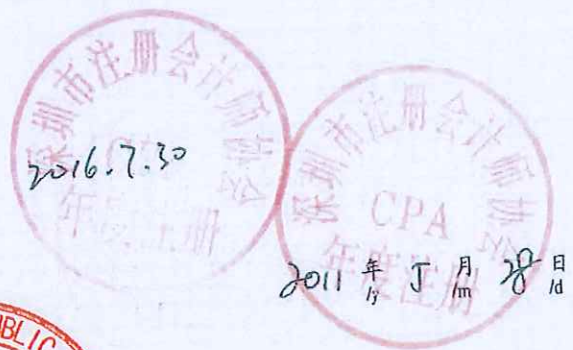 深圳市注册会计师协会
2016.7.30
年度注册
深圳市注册会计师协会
CPA
年度注册
2011 年 5 月 28 日
/y /m /d
BLIC